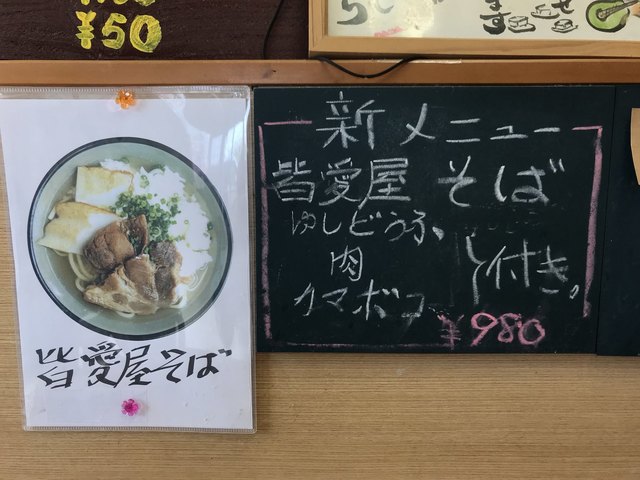 ¥50
新メニュー
皆愛屋 そば
ゆしどうふ、
肉
カマボコ 付き。
¥980
皆愛屋そば